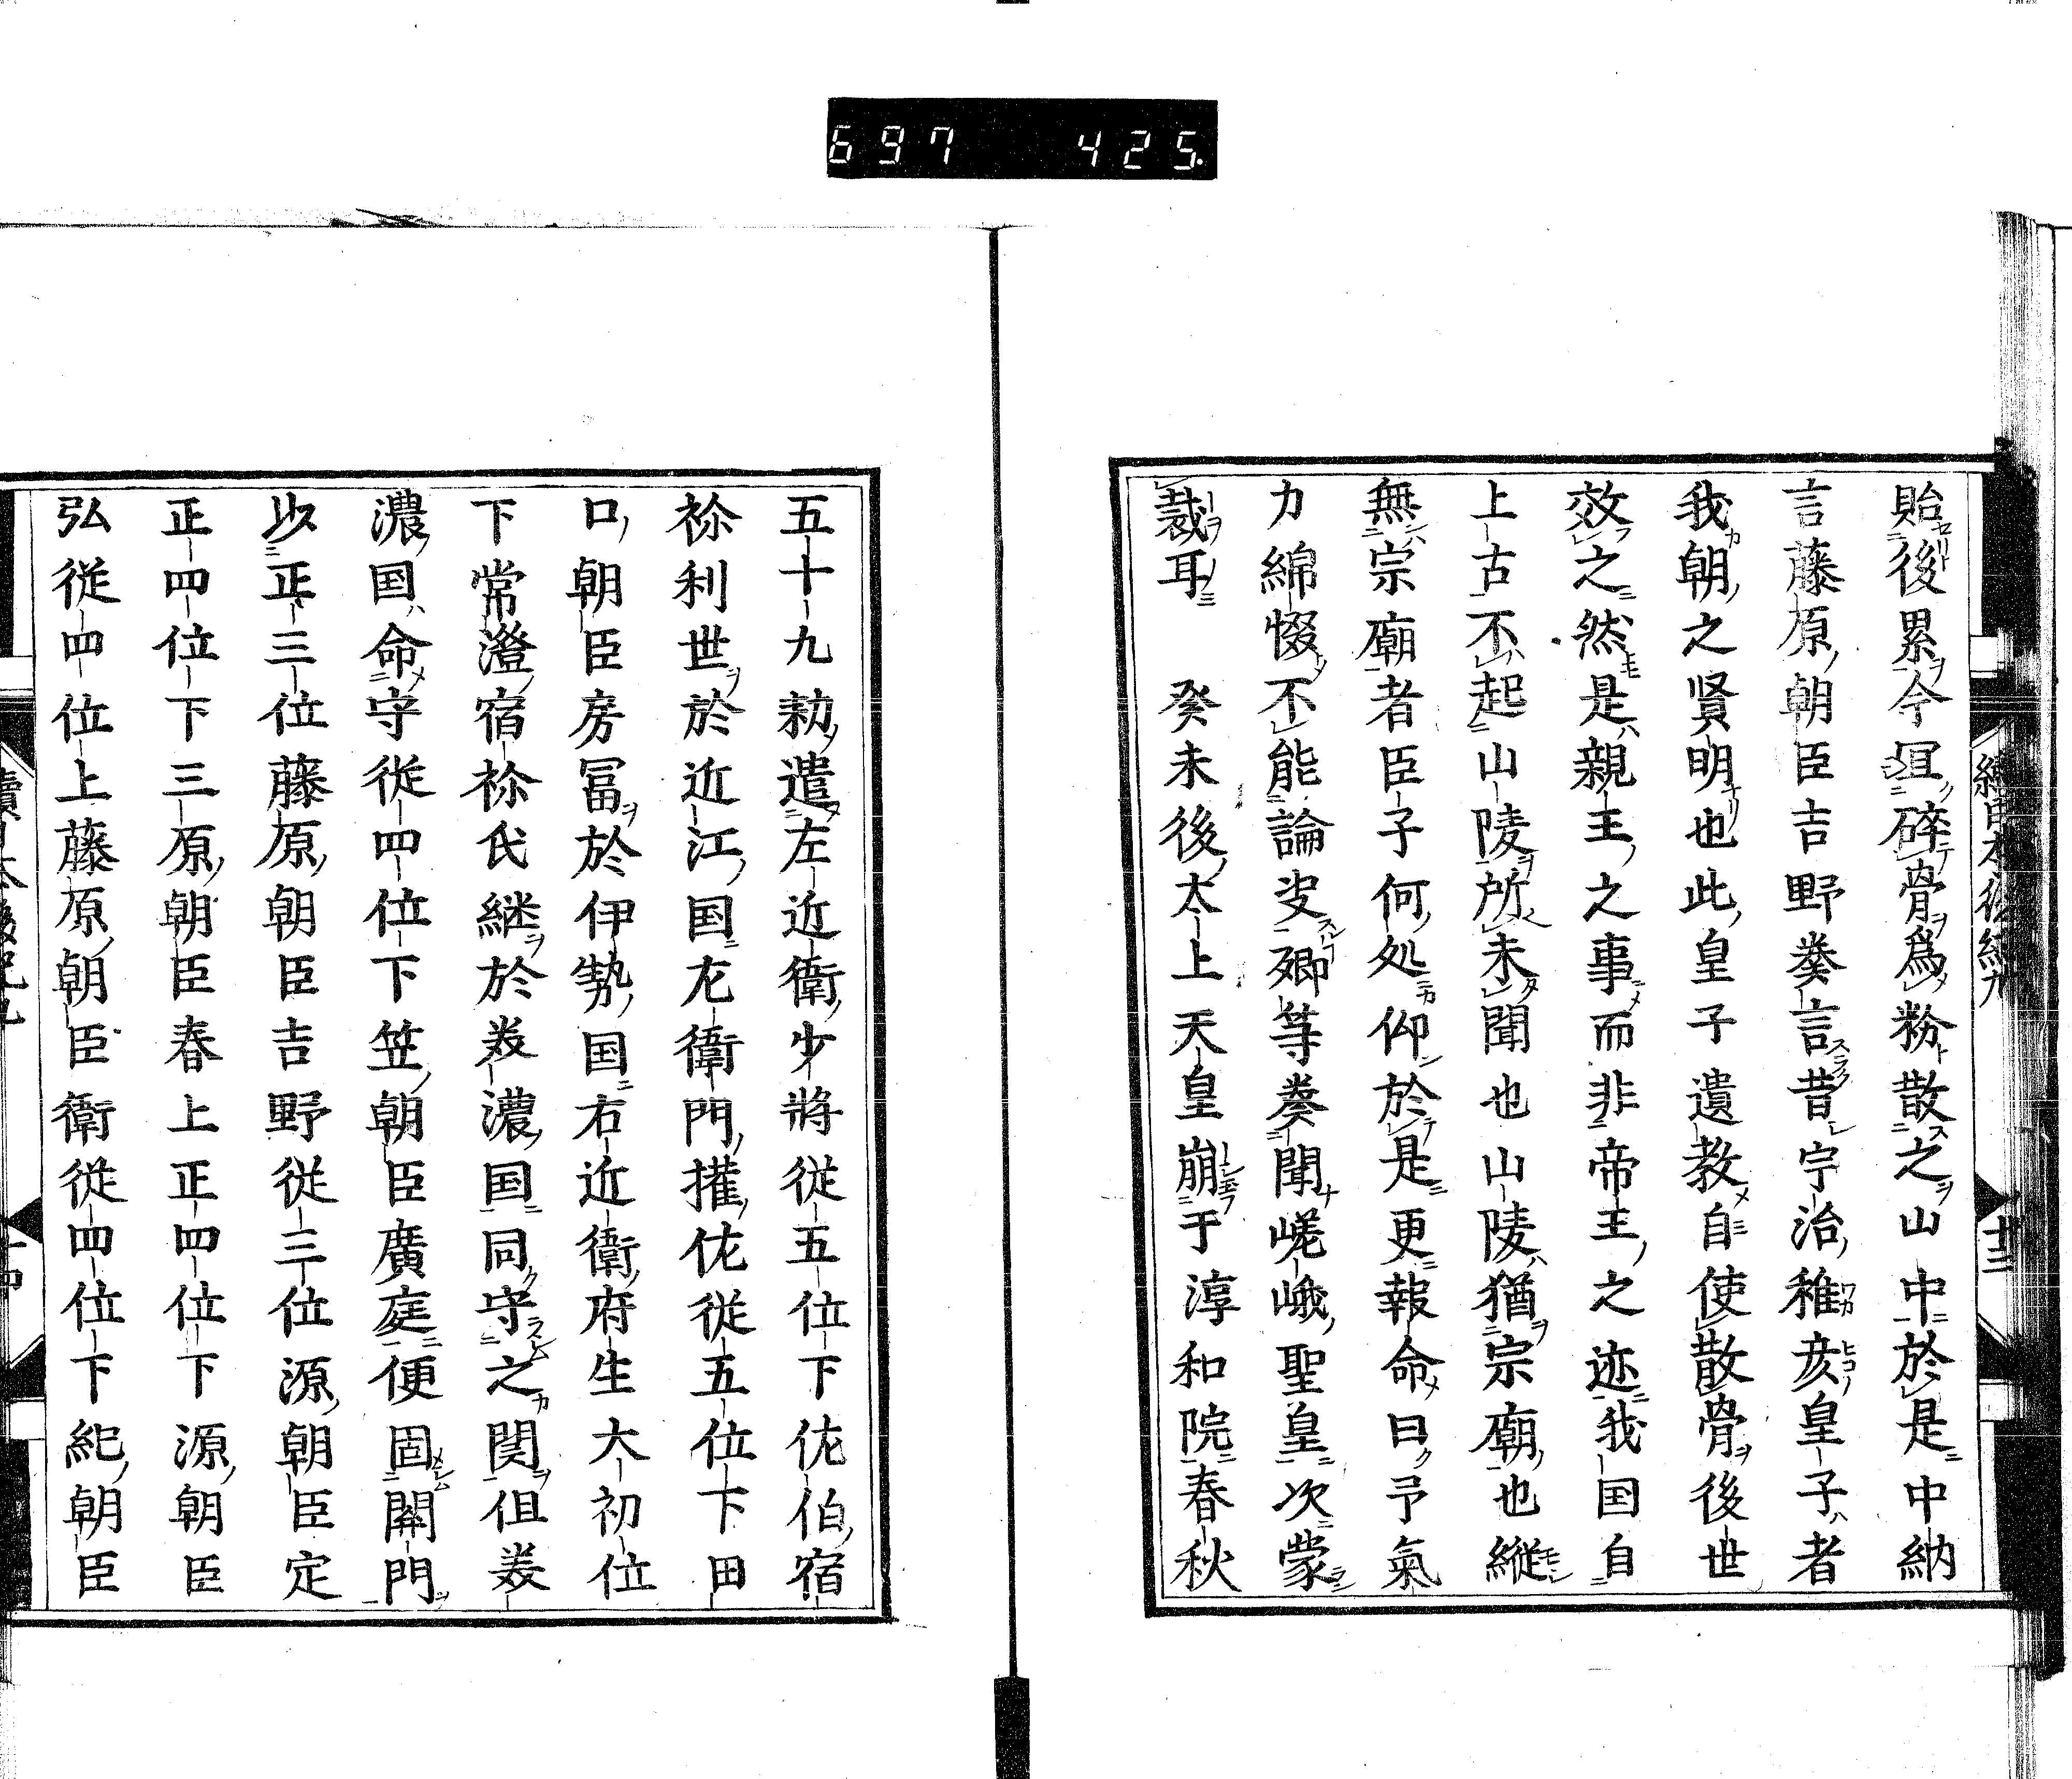 697 425.
貽後累今冝碎骨爲粉散之山中於是中納
言藤原朝臣吉野奏言昔宇治稚彦皇子者
我朝之賢明也此皇子遺教自使散骨後世
效之然是親王之事而非帝王之迹我国自
上古不起山陵所未聞也山陵猶宗廟也縱
無宗廟者臣子何処仰於是更報命曰予氣
力綿惙不能論决卿等奏聞嵯峨聖皇次蒙
裁耳　癸未後太上天皇崩于淳和院春秋
五十九勅遣左近衛少將從五位下佐伯宿
祢利世於近江国左衛門權佐從五位下田
口朝臣房冨於伊勢国右近衛府生大初位
下常澄宿祢氏継於美濃国同守之関但美
濃国命守從四位下笠朝臣廣庭便固關門
以正三位藤原朝臣吉野從三位源朝臣定
正四位下三原朝臣春上正四位下源朝臣
弘從四位上藤原朝臣衛從四位下紀朝臣